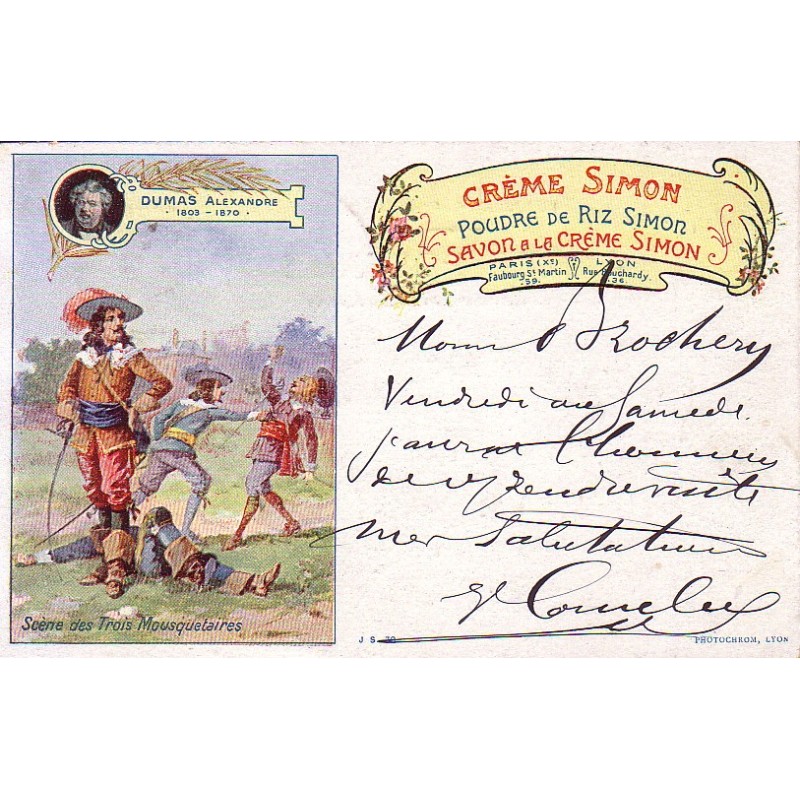 DUMAS ALEXANDRE
· 1803 – 1870 ·
Scène des Trois Mousquetaires
CRÈME SIMON
POUDRE DE RIZ SIMON
SAVON A LA CRÈME SIMON
PARIS (Xe) LYON
Faubourg St Martin Rue Bouchardy
59. 36.
Brochery
Vendredi ou Samedi
j'aurai l'honneur
de vs rendre visite
mes Salutations
J S 30
PHOTOCHROM, LYON